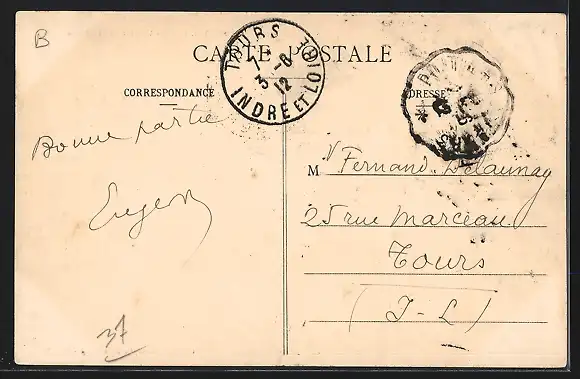 B
CARTE POSTALE
TOURS
3 -6
12
INDRE ET LOIRE
CORRESPONDANCE
ADRESSE
Bonne partie
M r Fernand Delaunay
25 rue Marceau
Tours
(I-L)
37